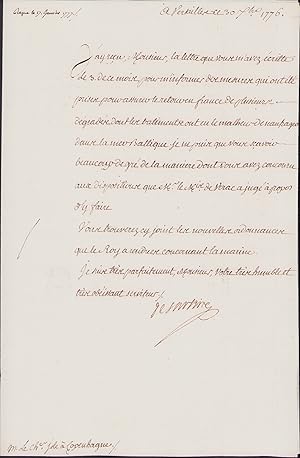 Reçue le 17. Janvier 1777.
A Versailles le 30 Xbre 1776.
J'ay reçu, Monsieur, la lettre que vous m'avez écritte
le 3. de ce mois, pour m'informer des mesures qui ont été
prises pour assurer le retour en france de plusieurs
dont les batiments ont eu le malheur de naufrager
dans la mer Baltique. je ne puis que vous scavoir
beaucoup de gré de la maniere dont vous avez concouru
aux dispositions que M. le Mis. de Verac a jugé à propos
d'y faire.
Vous trouverez cy joint les nouvelles ordonnances
que le Roy a rendues concernant la marine.
Je suis très parfaitement, Monsieur, votre très humble et
très obéissant serviteur/.
de Sartine
M. le à Copenhague/